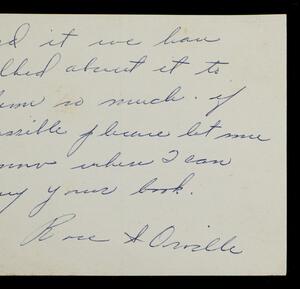 ed it we have
lked about it to
 so much. if
ssible please let me
know when I can
uy your book.
Rose & Orville